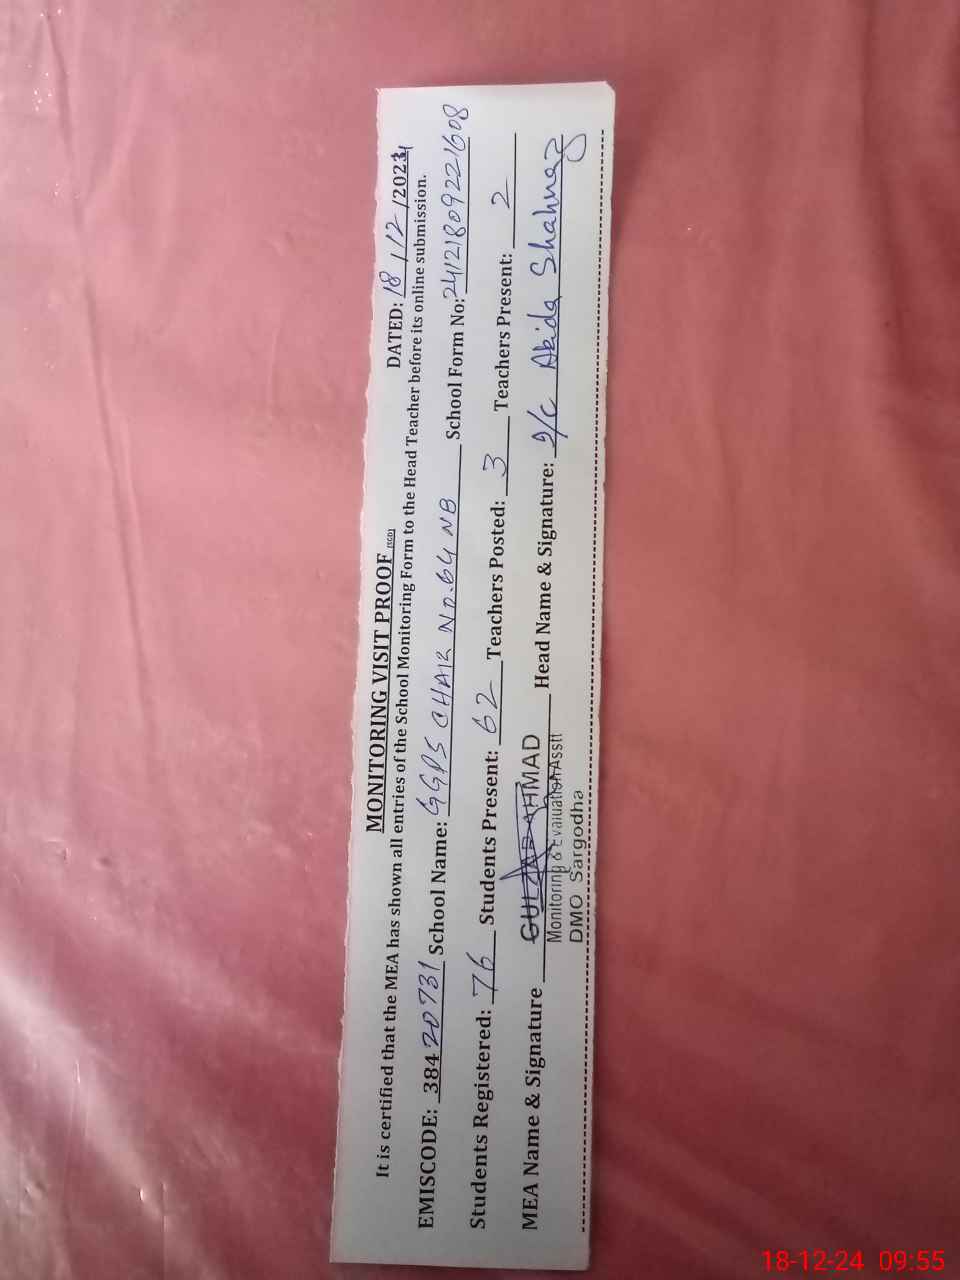 MONITORING VISIT PROOF
DATED: 18/12/2024
It is certified that the MEA has shown all entries of the School Monitoring Form to the Head Teacher before its online submission.
EMISCODE: 38420731 School Name: GGPS CHAK NO.64 NB School Form No: 24121809221608
Students Registered: 76 Students Present: 62 Teachers Posted: 3 Teachers Present: 2
MEA Name & Signature GULZAR AHMAD Head Name & Signature: I/C Abida Shahnaz
Monitoring & Evaluation Asstt
DMO Sargodha
18-12-24 09:55